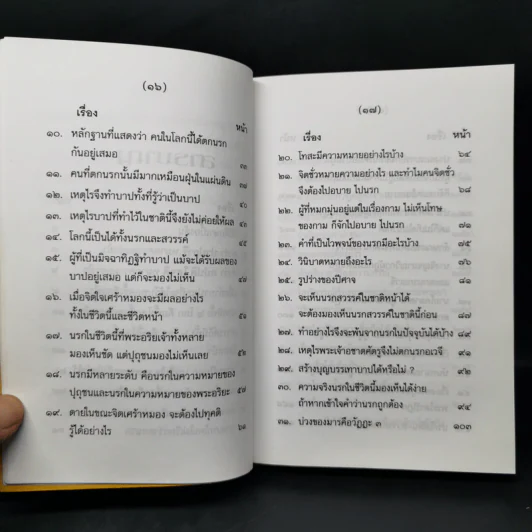 (๑๖)
เรื่อง หน้า
๑๐. หลักฐานที่แสดงว่า คนในโลกนี้ได้ตกนรก
กันอยู่เสมอ ๓๒
๑๑. คนที่ตกนรกนั้นมีมากเหมือนฝุ่นในแผ่นดิน
๑๒. เหตุไรจึงทำบาปทั้งที่รู้ว่าเป็นบาป
๑๓. เหตุไรบาปที่ทำไว้ในชาตินี้จึงยังไม่ค่อยให้ผล
๑๔. โลกนี้เป็นได้ทั้งนรกและสวรรค์ ๔๕
๑๕. ผู้ที่เป็นมิจฉาทิฏฐิทำบาป แม้จะได้รับผลของ
บาปอยู่เสมอ แต่ก็จะมองไม่เห็น ๔๗
๑๖. เมื่อจิตใจเศร้าหมองจะมีผลอย่างไร
ทั้งในชีวิตนี้และชีวิตหน้า ๕๑
๑๗. นรกในชีวิตนี้ที่พระอริยเจ้าทั้งหลาย
มองเห็นชัด แต่ปุถุชนมองไม่เห็นเลย
๑๘. นรกมีหลายระดับ คือนรกในความหมายของ
ปุถุชนและนรกในความหมายของพระอริยะ ๕๗
๑๙. ตายในขณะจิตเศร้าหมอง จะต้องไปทุคติ
รู้ได้อย่างไร ๖๑
(๑๗)
เรื่อง หน้า
๒๐. โทสะมีความหมายอย่างไรบ้าง ๖๔
๒๑. จิตชั่วหมายความอย่างไร และทำไมคนจิตชั่ว
จึงต้องไปอบาย ไปนรก ๖๘
๒๒. ผู้ที่หมกมุ่นอยู่แต่ในเรื่องกาม ไม่เห็นโทษ
ของกาม ก็จักไปอบาย ไปนรก ๗๑
๒๓. คำที่เป็นไวพจน์ของนรกมีอะไรบ้าง ๗๕
๒๔. วินิบาตหมายถึงอะไร ๗๖
๒๕. รูปร่างของปีศาจ ๘๑
๒๖. จะเห็นนรกสวรรค์ในชาติหน้าได้
จะต้องมองเห็นนรกสวรรค์ในชาตินี้ก่อน ๘๗
๒๗. ทำอย่างไรจึงจะพ้นจากนรกในปัจจุบันได้บ้าง ๘๙
๒๘. เหตุไรพระเจ้าอชาตศัตรูจึงไม่ตกนรกอเวจี ๙๑
๒๙. สร้างบุญบรรเทาบาปได้หรือไม่ ? ๙๒
๓๐. ความจริงนรกในชีวิตนี้มองเห็นได้ง่าย
ถ้าหากเข้าใจคำว่านรกถูกต้อง ๙๔
๓๑. บ่วงของมารคือวัฏฏะ ๓ ๑๐๓